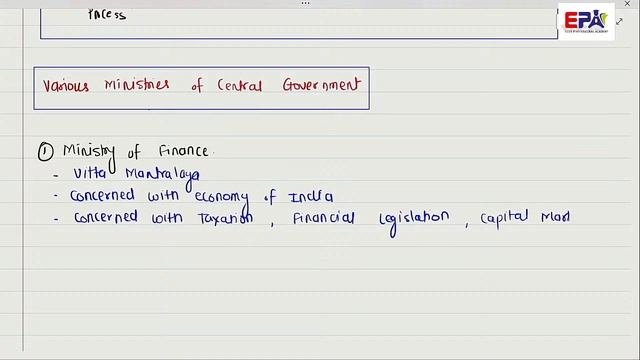 Process
EPA
Various Ministries of Central Government
① Ministry of Finance.
- Vitta Mantralaya
- Concerned with economy of India
- Concerned with Taxation, Financial Legislation, Capital Mar